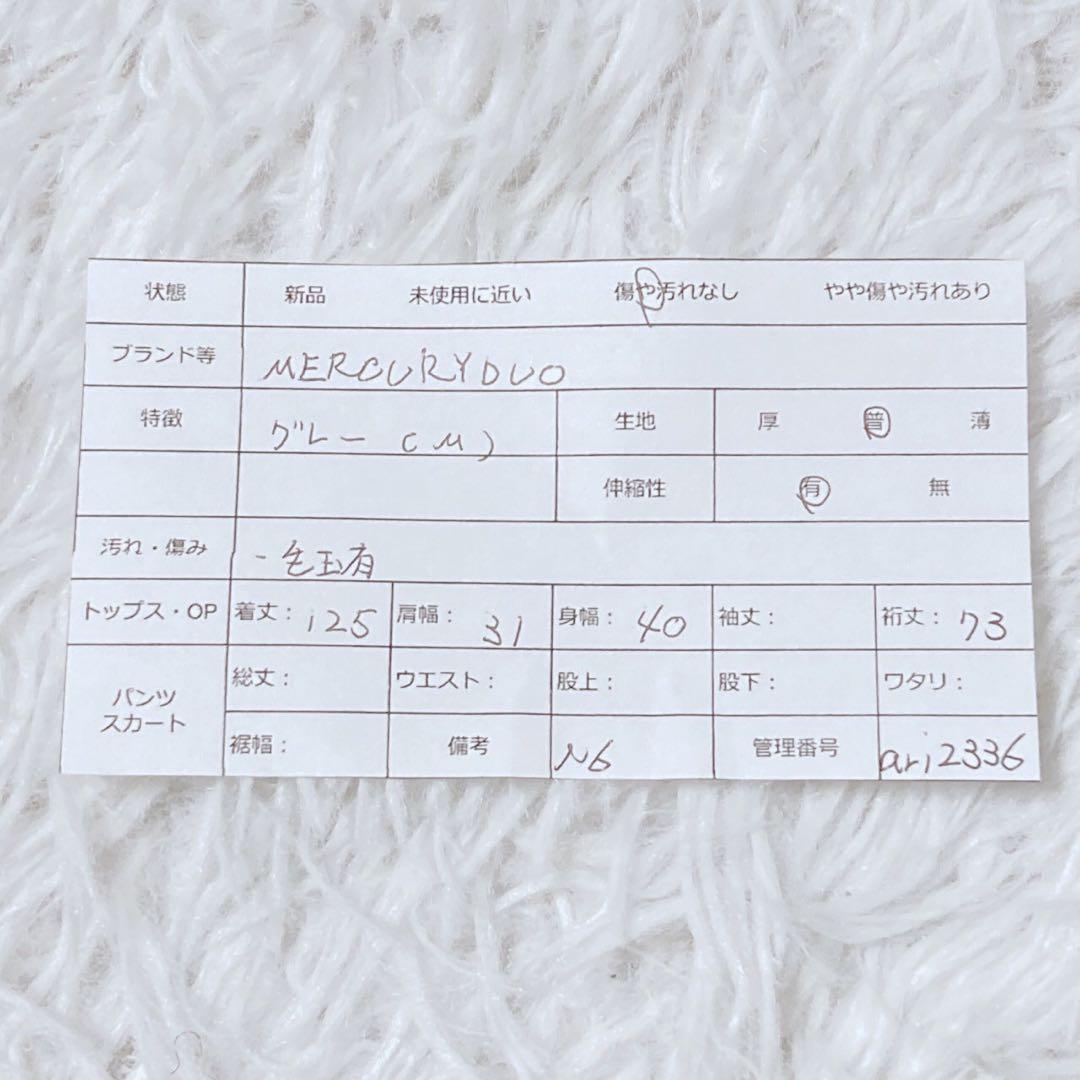 状態 新品 未使用に近い 傷や汚れなし やや傷や汚れあり
ブランド等 MERCURYDUO
特徴 グレー (M) 生地 厚 普 薄
伸縮性 有 無
汚れ・傷み ・毛玉有
トップス・OP 着丈: 125 肩幅: 31 身幅: 40 袖丈: 裄丈: 73
パンツ スカート 総丈: ウエスト: 股上: 股下: ワタリ:
裾幅: 備考 N6 管理番号 ari2336